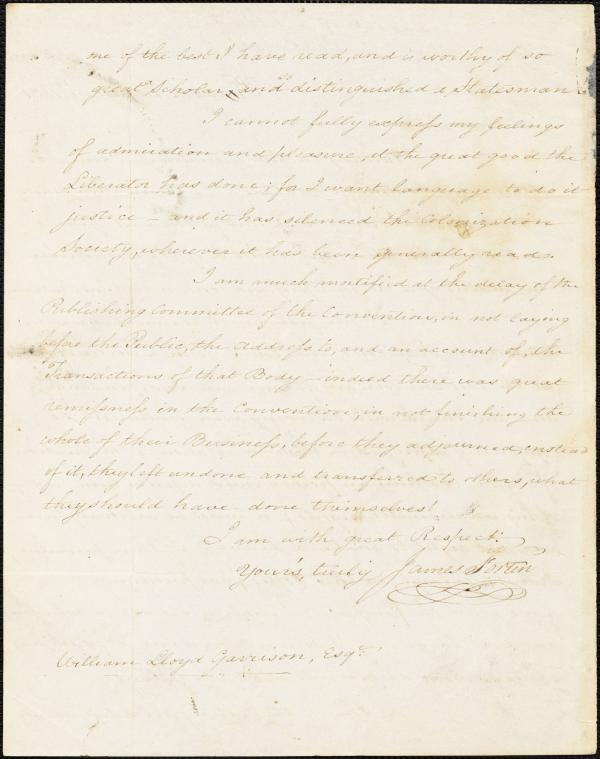 one of the best I have read, and is worthy of so
great Scholar, and distinguished a Statesman
I cannot fully express my feelings
of admiration and pleasure, at the great good the
Liberator has done; for I want language to do it
justice — and it has silenced the Colonization
Society, wherever it has been generally read.
I am much mortified at the delay of the
Publishing Committee of the Convention, in not laying
before the Public, the address's, and an account of, the
Transactions of that Body — indeed there was great
remissness in the Convention, in not finishing the
whole of their Business, before they adjourned, instead
of it, they left undone and transferred to others, what
they should have done themselves!
I am with great Respect:
Your's, truly James Forten
William Lloyd Garrison, Esqr.